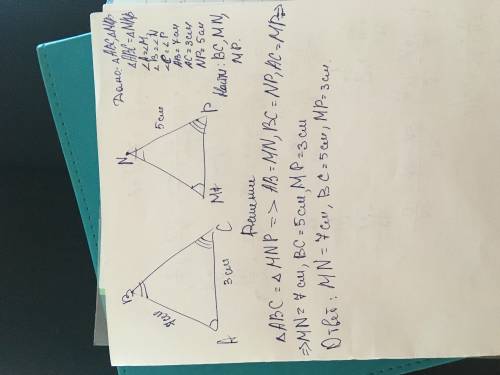 Дано: △ABC, △MNP
△ABC = △MNP
∠A=∠M
∠B=∠N
∠C=∠P
AB=7см
AC=3см
NP=5см
Найти: BC, MN,
MP.
B
7см
A
3см
C
N
5см
M
P
Решение
△ABC = △MNP => AB=MN, BC=NP, AC=MP=>
=> MN=7см, BC=5см, MP=3см
Ответ: MN=7см, BC=5см, MP=3см.